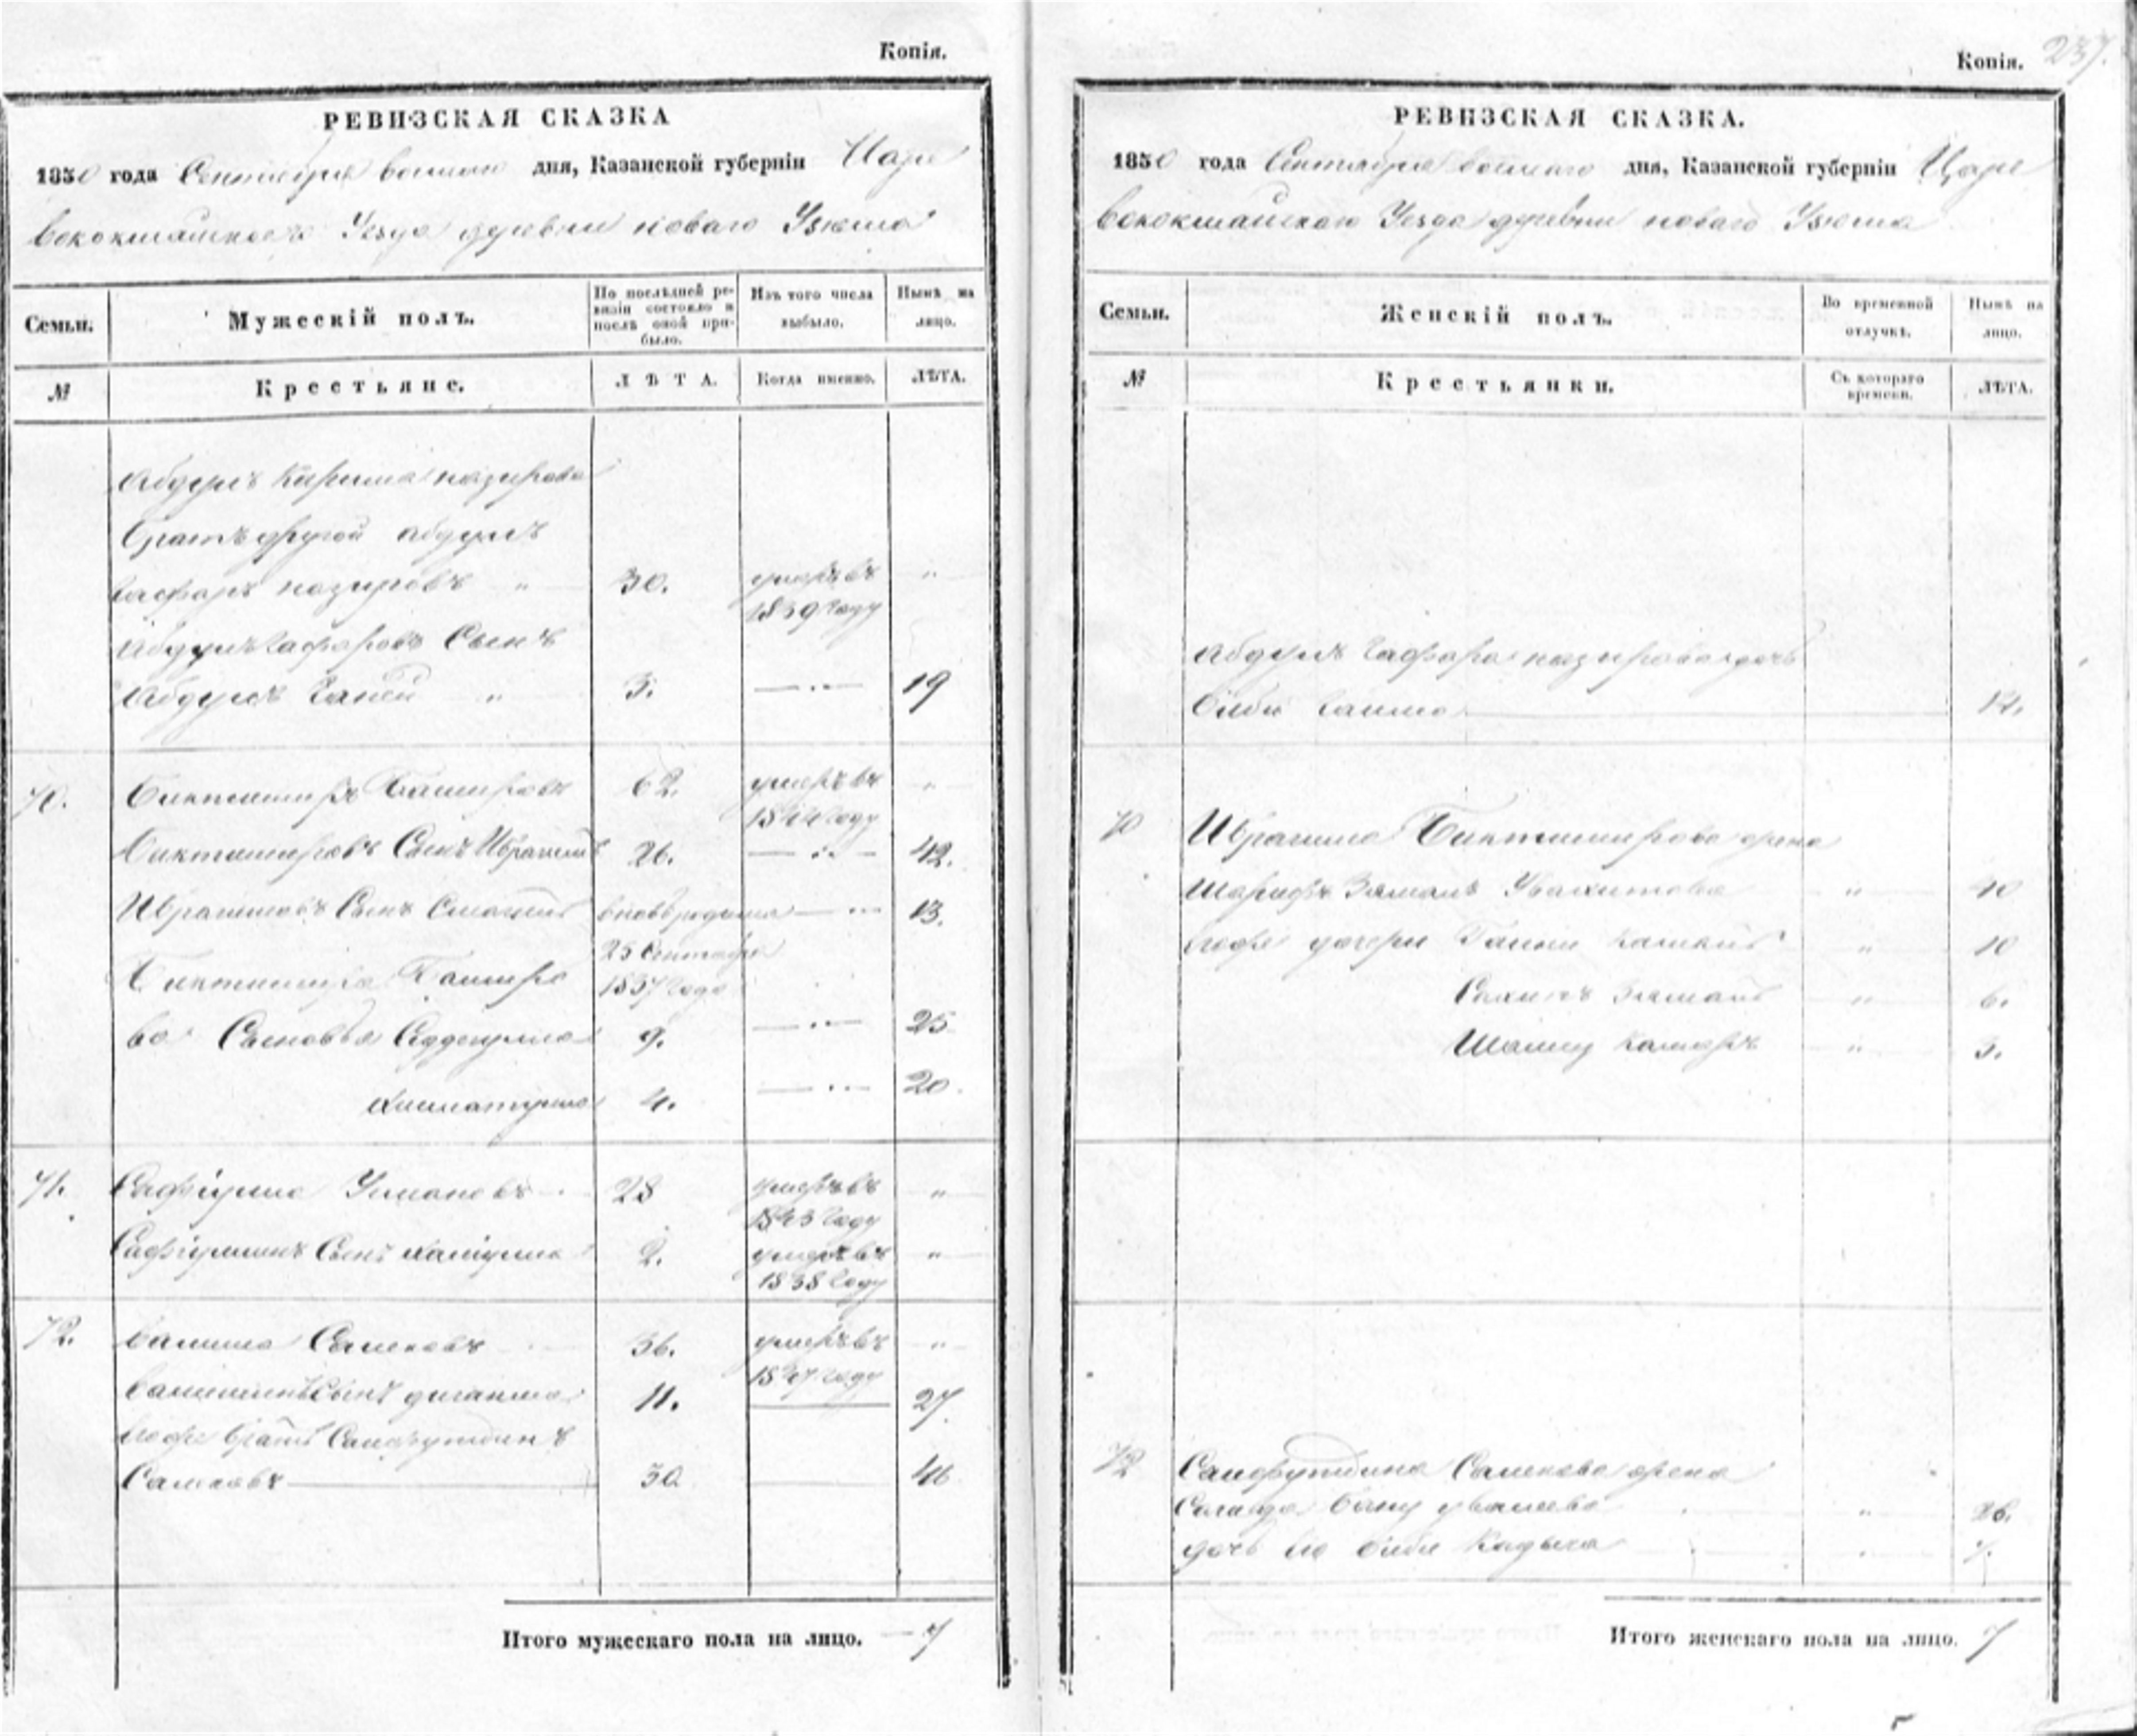 Копія.
РЕВИЗСКАЯ СКАЗКА
1850 года Сентября дня, Казанской губерніи Царе
вококшайскаго Уезда деревни новаго Узюма
Семьи.
Мужескій полъ.
По послѣдней ре-
визіи состояло и
послѣ оной при-
было.
Изъ того числа
выбыло.
Нынѣ на
лицо.
№
Крестьяне.
ЛѢТА.
Когда именно.
ЛѢТА.
Абдулъ Карима назирова
братъ другой абдулъ
Гафаръ назировъ " 30. умеръ въ "
1839 году
Абдулъ Гафаровъ Сынъ
Абдулъ Ганей " 3. 19
70. Биктимиръ Башировъ 62. умеръ въ "
1844 году
Биктимировъ Сынъ Ибрагимъ 26. 42.
Ибрагимовъ Сынъ вновь родился 13.
25 Сентября
Биктимира Баширо 1837 года
ва Сыновья 9. 25
4. 20.
71. Сафіулла Усмановъ 28 умеръ въ "
1843 году
Сафіуллинъ Сынъ 2. умеръ въ "
1838 году
72. Салиховъ 36. умеръ въ "
1847 году
Сынъ 11. 27.
братъ Саифутдинъ
Салиховъ 30. 46
Итого мужескаго пола на лицо. 7
Копія. 237.
РЕВИЗСКАЯ СКАЗКА.
1850 года Сентября дня, Казанской губерніи Царе
вококшайскаго Уезда деревни новаго Узюма
Семьи.
Женскій полъ.
Во временной
отлучкѣ.
Нынѣ на
лицо.
№
Крестьянки.
Съ котораго
времени.
ЛѢТА.
Абдулъ Гафара назирова дочь
Биби 12.
70 Ибрагима Биктимирова жена
Шарифъ Замалъ " 40
дочери " 10
Замалъ " 6.
Шамсу Камаръ " 3.
72 Саифутдина Салихова жена
Бану " 26.
дочь Биби Кадыча " 7.
Итого женскаго пола на лицо. 7